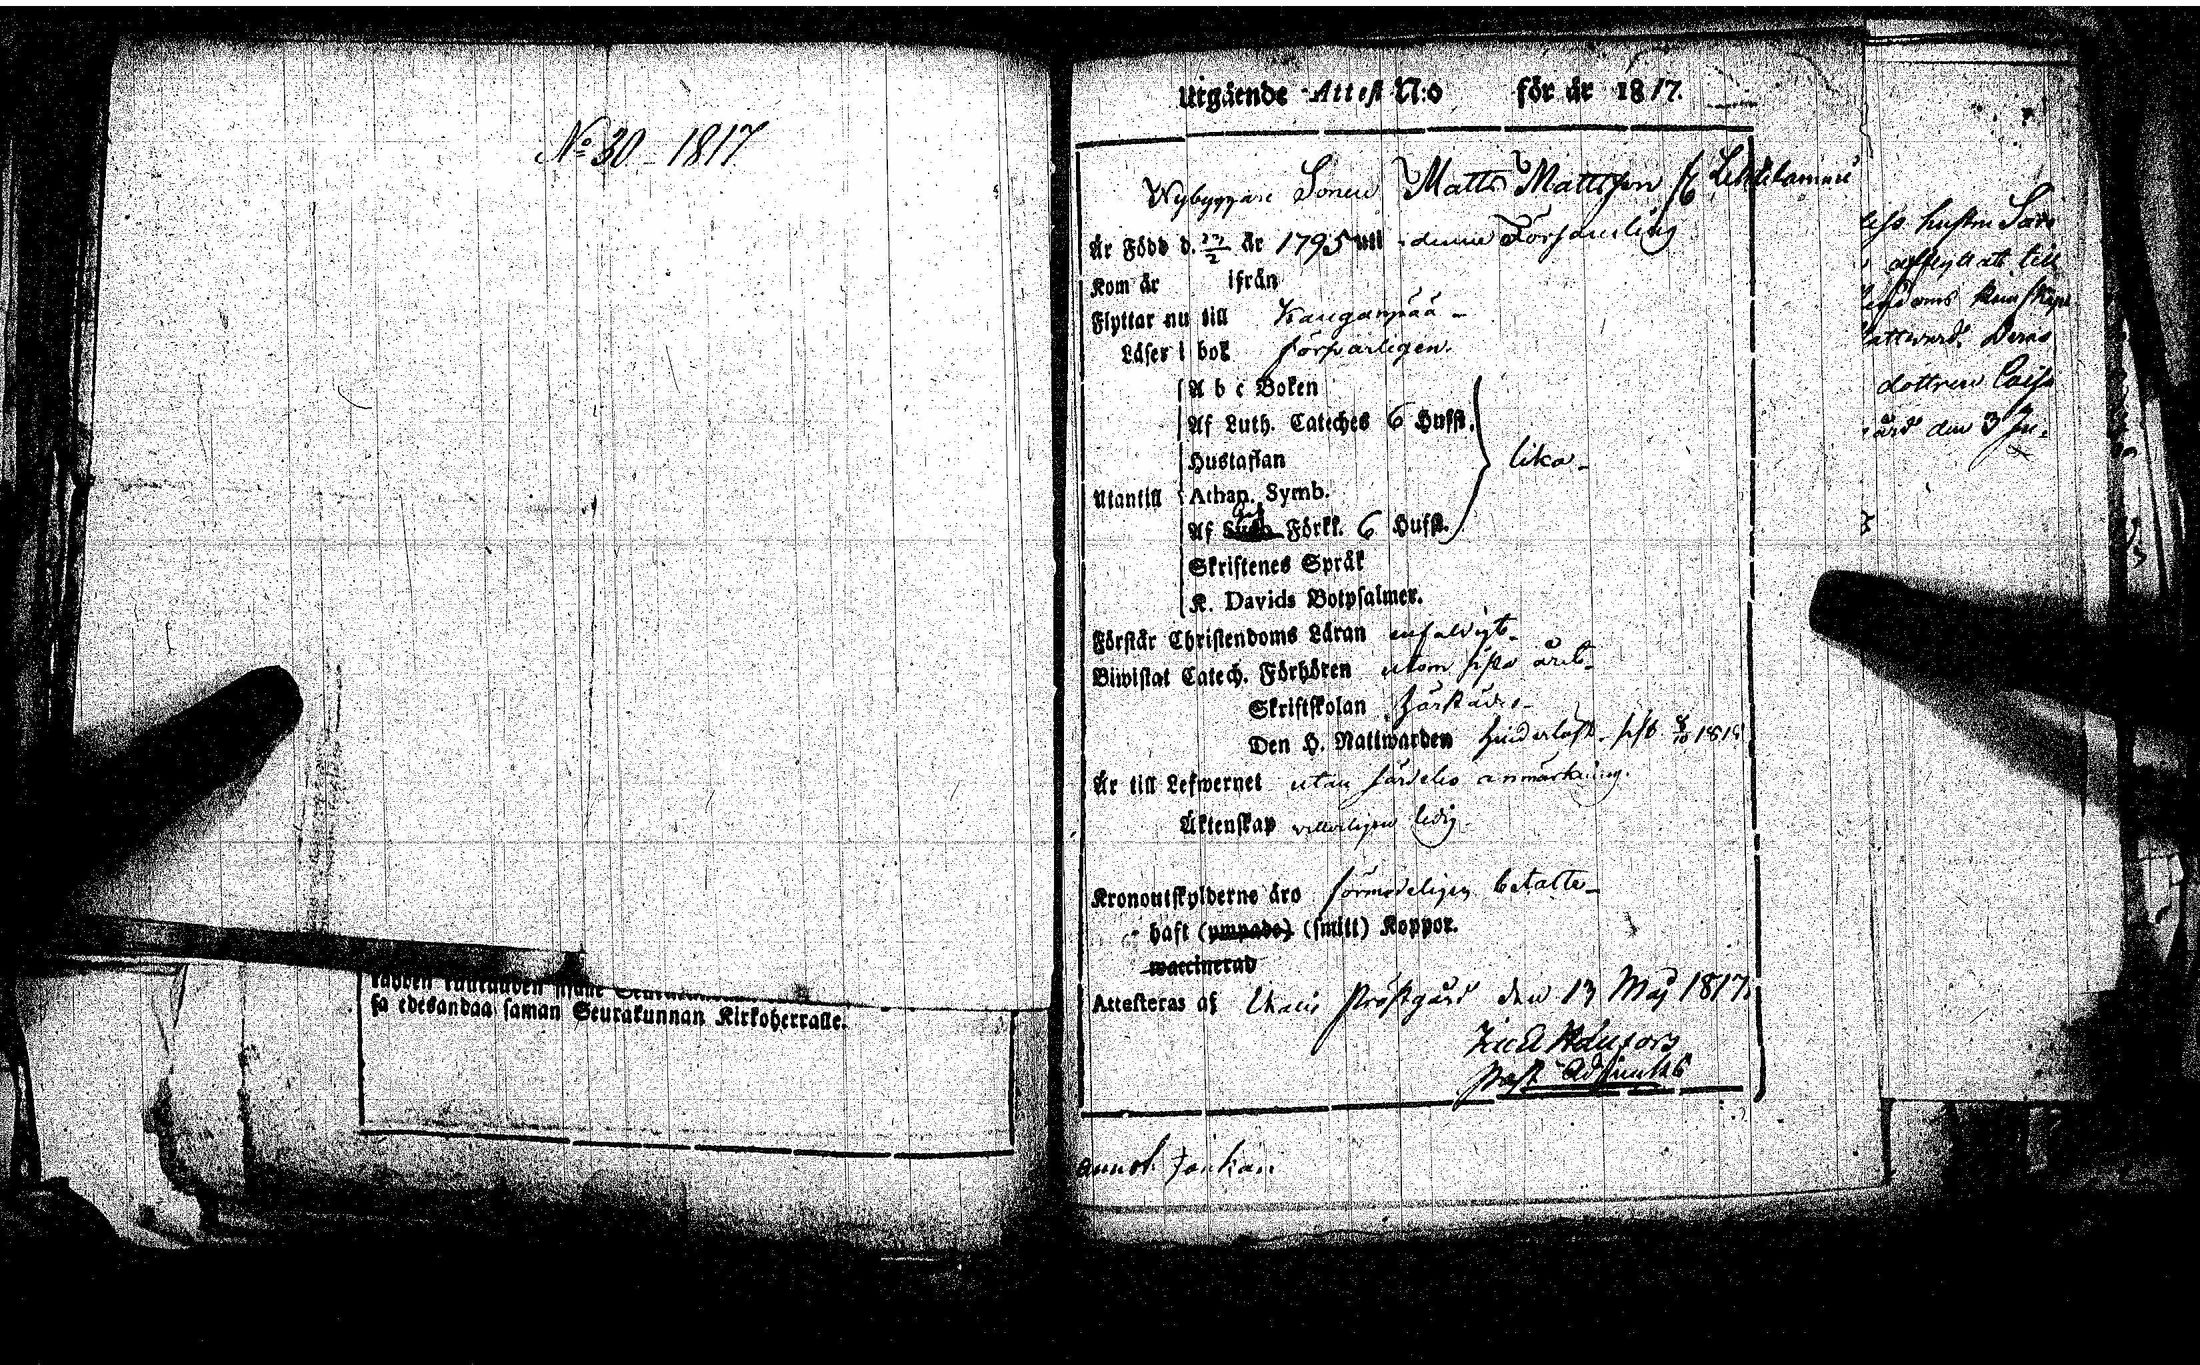 No 30 - 1817
sa edesandaa saman Seurakunnan Kirkoherralle.
Utgående Attest N:o för år 1817.
Nybyggare Sonen Matts Mattsson fr
Är Född d. 27/2 år 1795 uti denna Församling
Kom år ifrån
Flyttar nu till Kanganpää -
Läser i bok försvarligen.
A b c Boken
Af Luth. Cateches 6 Hufst.
Hustaflan
lika -
Utantill Athan. Symb.
Af Förkl. 6 Hufst.
Skriftenes Språk
K. Davids Botpsalmer.
Förstår Christendoms Läran enfaldigt -
Biwistat Catech. Förhören utom sista året -
Skriftskolan
Den H. Nattwarden hinderlöst. sist
Är till Lefwernet utan särdeles anmärkning.
Äktenskap vitterligen ledig -
Kronoutskylderne äro förmodeligen betalte -
haft (ympade) (smitt) Koppor.
waccinerad
Attesteras af Prästgård den 13 Maj 1817.
Past. Adjunkt
less hustru Sara
afflyttat till
Christendoms kunskap
Nattvard. Deras
dottren Caisa
gård den 3 Ju.